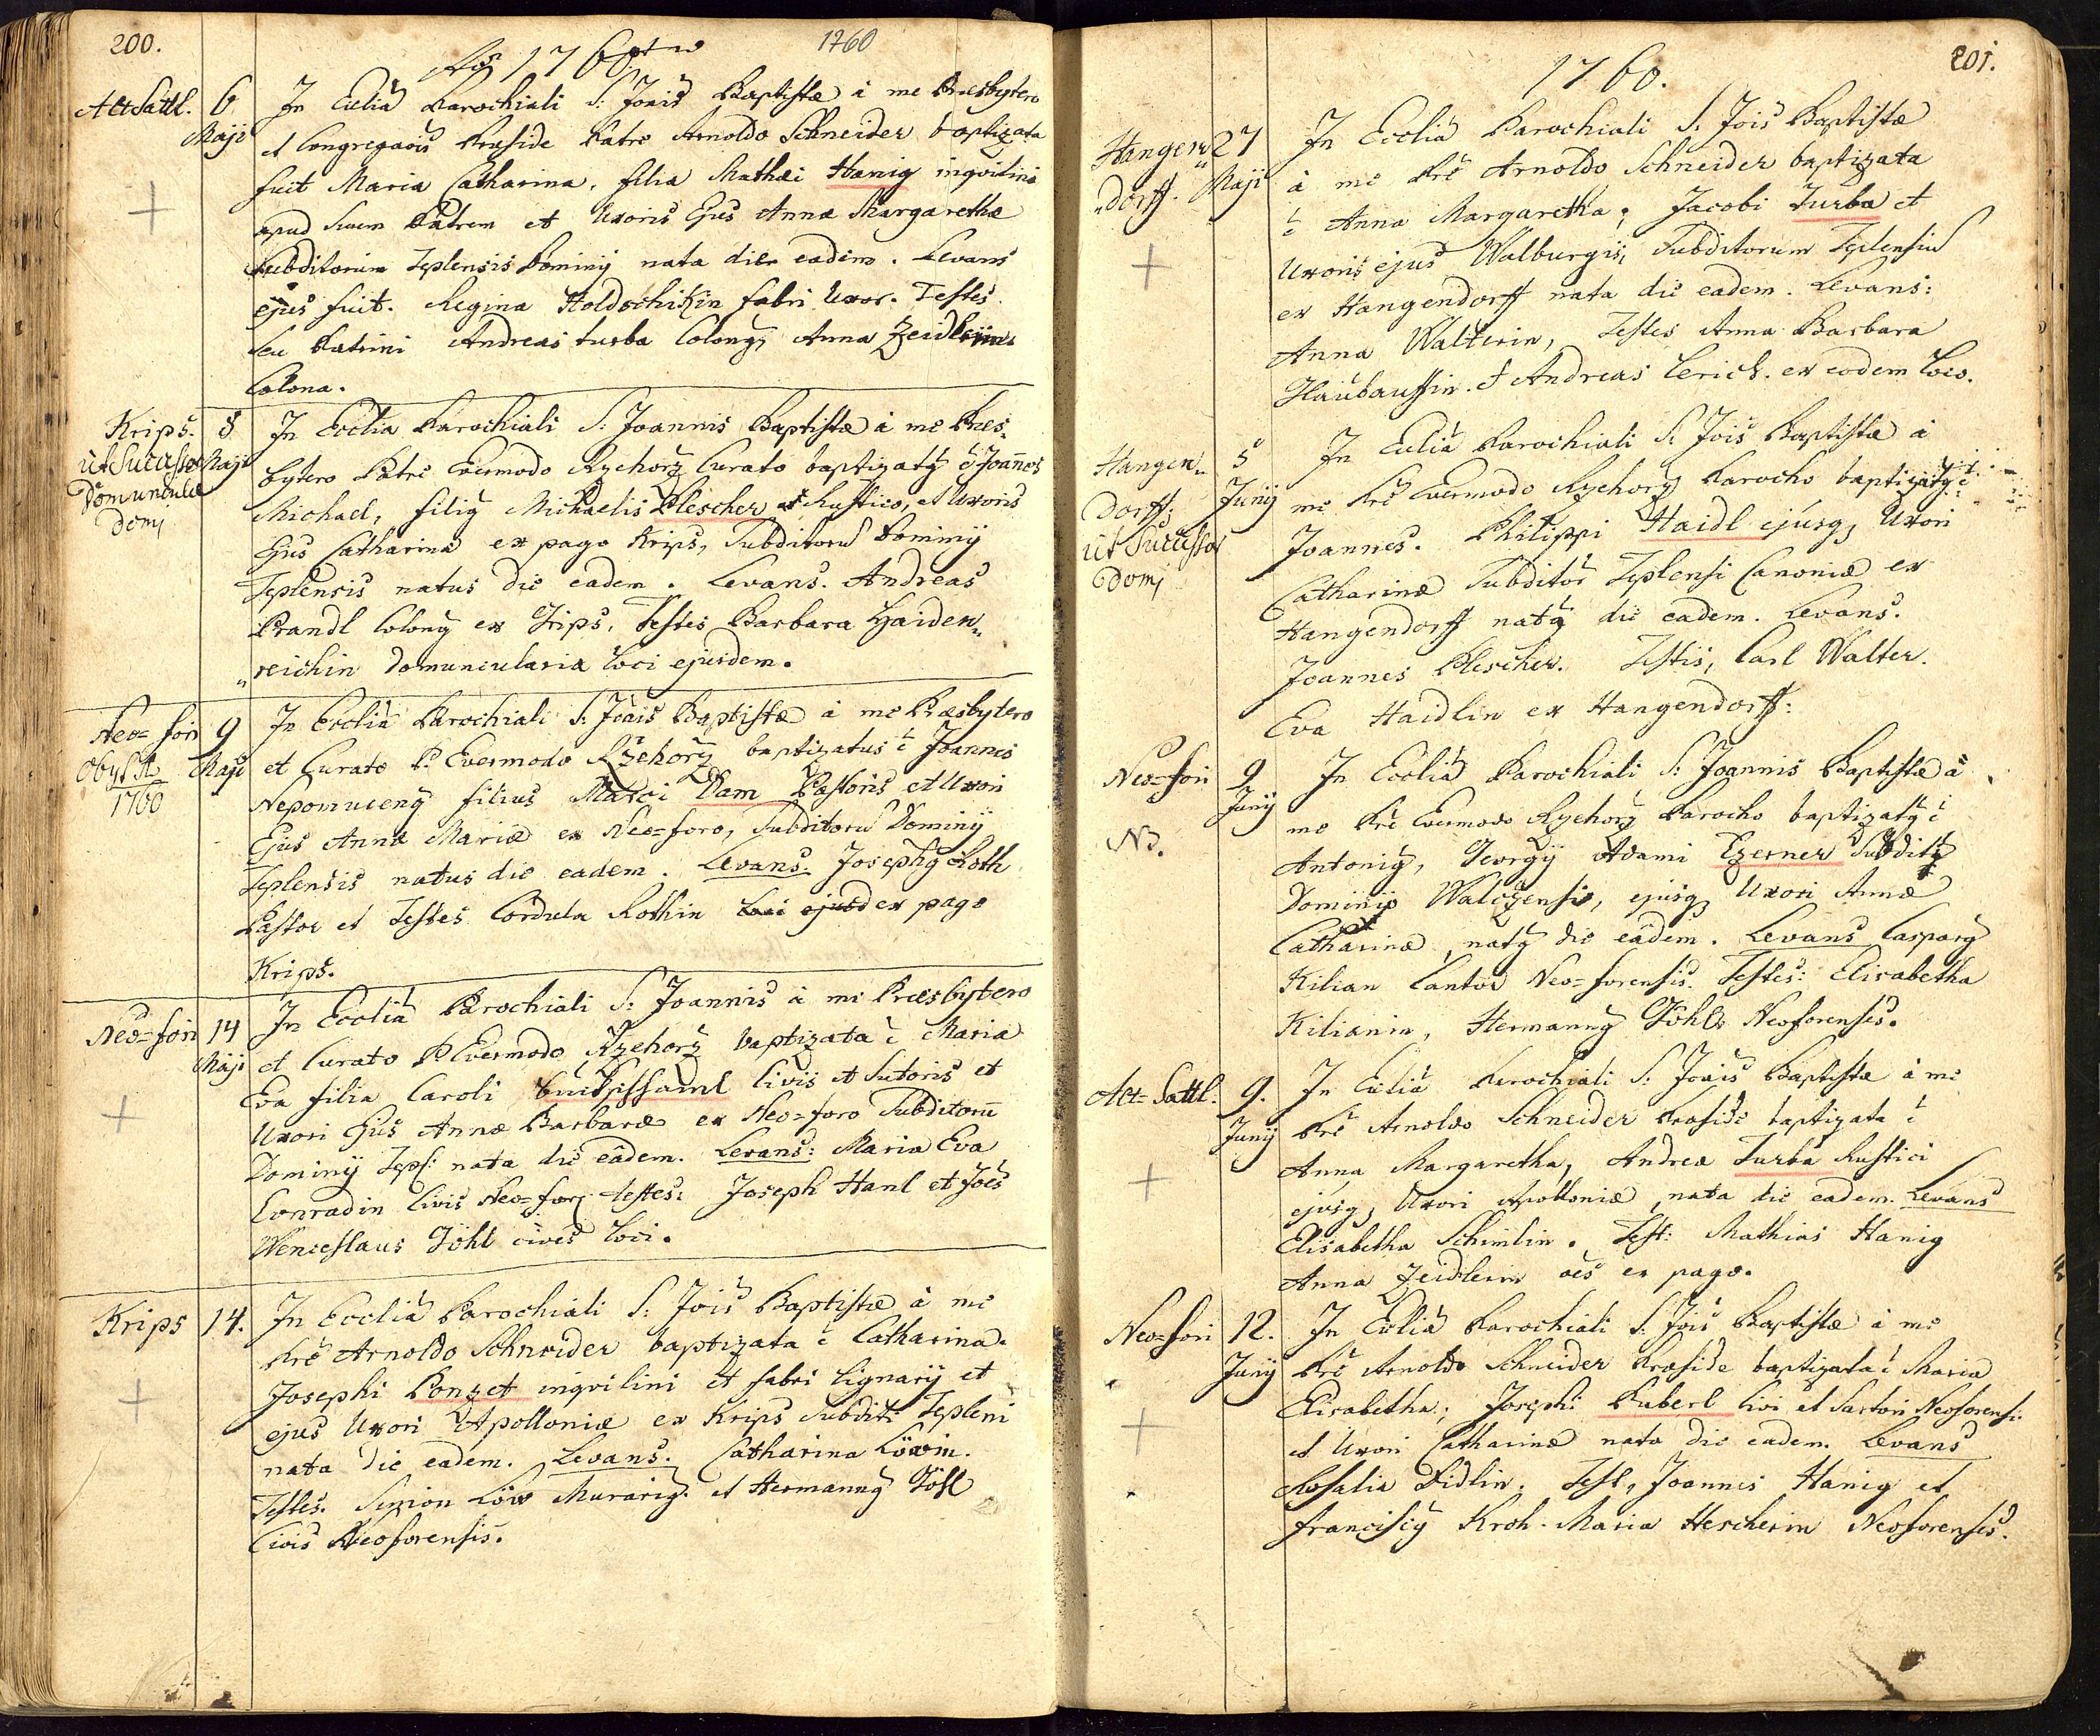 200.
Ao 1760
1760
Alt Sattl.
6
Maji
In Ecclia Parochiali S: Joais Baptistæ à me Presbytero
et Congregaois Præside Patre Arnoldo Schneider baptizata
fuit Maria Catharina, filia Mathæi Hanig inqvilini
apud suum Patrem et Uxoris Ejus Annæ Margarethæ
subditorum Teplensis Dominij nata die eadem. Levans
ejus fuit. Regina Holdschikin fabri Uxor. Testes
seu Patrini Andreas turba Colonq, Anna Zeidlerin
Colona.
Krips.
ut Successor
Domunculæ
Domj
8
Maji
In Ecclia Parochiali S: Joannis Baptistæ à me Pres¬
bytero Patre Evermodo Rzehorz Curato baptizatq ĕ Joañes
Michael, filiq Michaelis Plescher Rustico, et Uxoris
Ejus Catharinæ ex pago Krips, Subditorū Dominij
Teplensis natus die eadem. Levans. Andreas
Prandl Colonq ex Grips, Testes Barbara Haiden„
„reichin Domuncularia loci ejusdem.
Neo=fori
Obyt
1760
9
Maji
In Ecclia Parochiali S: Joais Baptistæ à me Præsbytero
et Curato P. Evermodo Rzehorz baptizatus ĕ Joannes
Nepomucenq filius Marci Dam Pastoris et Uxori
Ejus Annæ Mariæ ex Neo=foro, Subditorū Dominij
Teplensis natus die eadem. Levans Josephq Roth
Pastor et Testes Cordula Rothin loci ejusd ex pago
Krips.
Neo=fori
14
Maji
In Ecclia Parochiali S: Joannis à me Præsbytero
et Curato P. Evermodo Rzehorz baptizata ĕ Maria
Eva filia Caroli civis et Sutoris et
Uxori Ejus Annæ Barbaræ ex Neo=foro Subditorū
Dominij Tepl: nata die eâdem. Levans: Maria Eva
Conradin civis Neo=forj testes: Joseph Hanl et Joes
Wenceslaus Göhl cives loci.
Krips
14.
In Ecclia Parochiali S: Jois Baptistæ à me
Pre Arnoldo Schneider baptizata ĕ Catharina.
Josephi Ponzet inqvilini et fabri lignarij et
ejus Uxori Apolloniæ ex Krips Subditi Tepleni
nata die eadem. Levans. Catharina Löwin.
Testes. Simion Löw Murariq. et Hermannq Göhl
Civis Neoforensis.
201.
1760.
Hangen„
„dorff.
27
Maji
In Ecclia Parochiali S: Jois Baptistæ
à me Pre Arnoldo Schneider baptizata
ĕ Anna Margaretha; Jacobi Turba et
Uxoris ejus Walburgis, Subditorum Teplensiu
ex Hangendorff nata die eadem. Levans:
Anna Walterin, Testes Anna Barbara
Haubaussin. et Andreas Lerich. ex eodem loco.
Hangen„
Dorff.
ut Successor
Domj
5
Junij
In Ecclia Parochiali S: Jois Baptistæ à
me Pre Evermodo Rzehorz Parocho baptizatq ĕ
Joannes. Philippi Haidl ejusq, Uxori
Catharinæ Subditor Teplensi Canoniæ ex
Hangendorff natq die eadem. Levans.
Joannes Plescher. Testis, Carl Walter.
Eva Haidlin ex Hangendorff:
Neo=fori
NB.
9
Junij
In Ecclia Parochiali S: Joannis Baptistæ à
me Pre Evermodo Rzehorz Parocho baptizatq ĕ
Antoniq, Georgij Adami Ezerner Subditq
Dominij Walczensis, ejusq, Uxori Annæ
Catharinæ, natq die eâdem. Levans Casparq
Kilian Cantor Neo=forensis. Testes: Elisabetha
Kilianin, Hermannq Göhl Neoforenses.
Alt=Sattl.
9.
Junij
In Ecclia Parochiali S: Joais Baptistæ à me
Pre Arnoldo Schneider Præside baptizata ĕ
Anna Margaretha, Andreæ Turba Rustici
ejusq, Uxori Apolloniæ, nata die eadem. Levans
Elisabetha Schimlin. Test: Mathias Hanig
Anna Zeidlerin oēs ex pago.
Neo=fori
12.
Junij
In Ecclia Parochiali S: Jois Baptistæ à me
Pre Arnoldo Schneider Præside baptizata ĕ Maria
Elisabetha; Josephi Puberl Civi et Sartori Neoforensi.
et Uxori Catharinæ nata die eadem. Levans
Rosalia Fidlin. Test, Joannes Hanig et
Franciscq Kroh. Maria Hescherin Neoforenses.